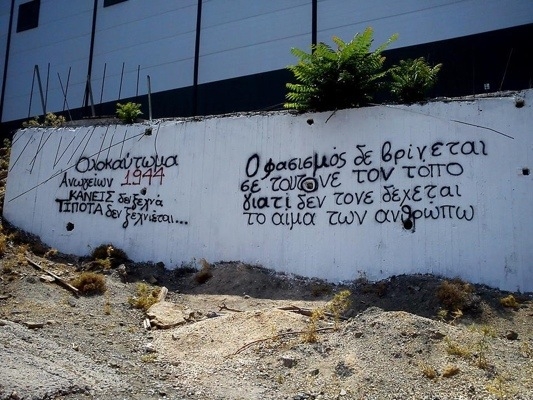 Ολοκαύτωμα
Ανωγείων 1944
ΚΑΝΕΙΣ δε ξεχνά
ΤΙΠΟΤΑ δεν ξεχνιέται...
Ο φασισμός δε βρίνεται
σε τούτονε τον τόπο
γιατί δεν τονε δέχεται
το αίμα των ανθρώπω